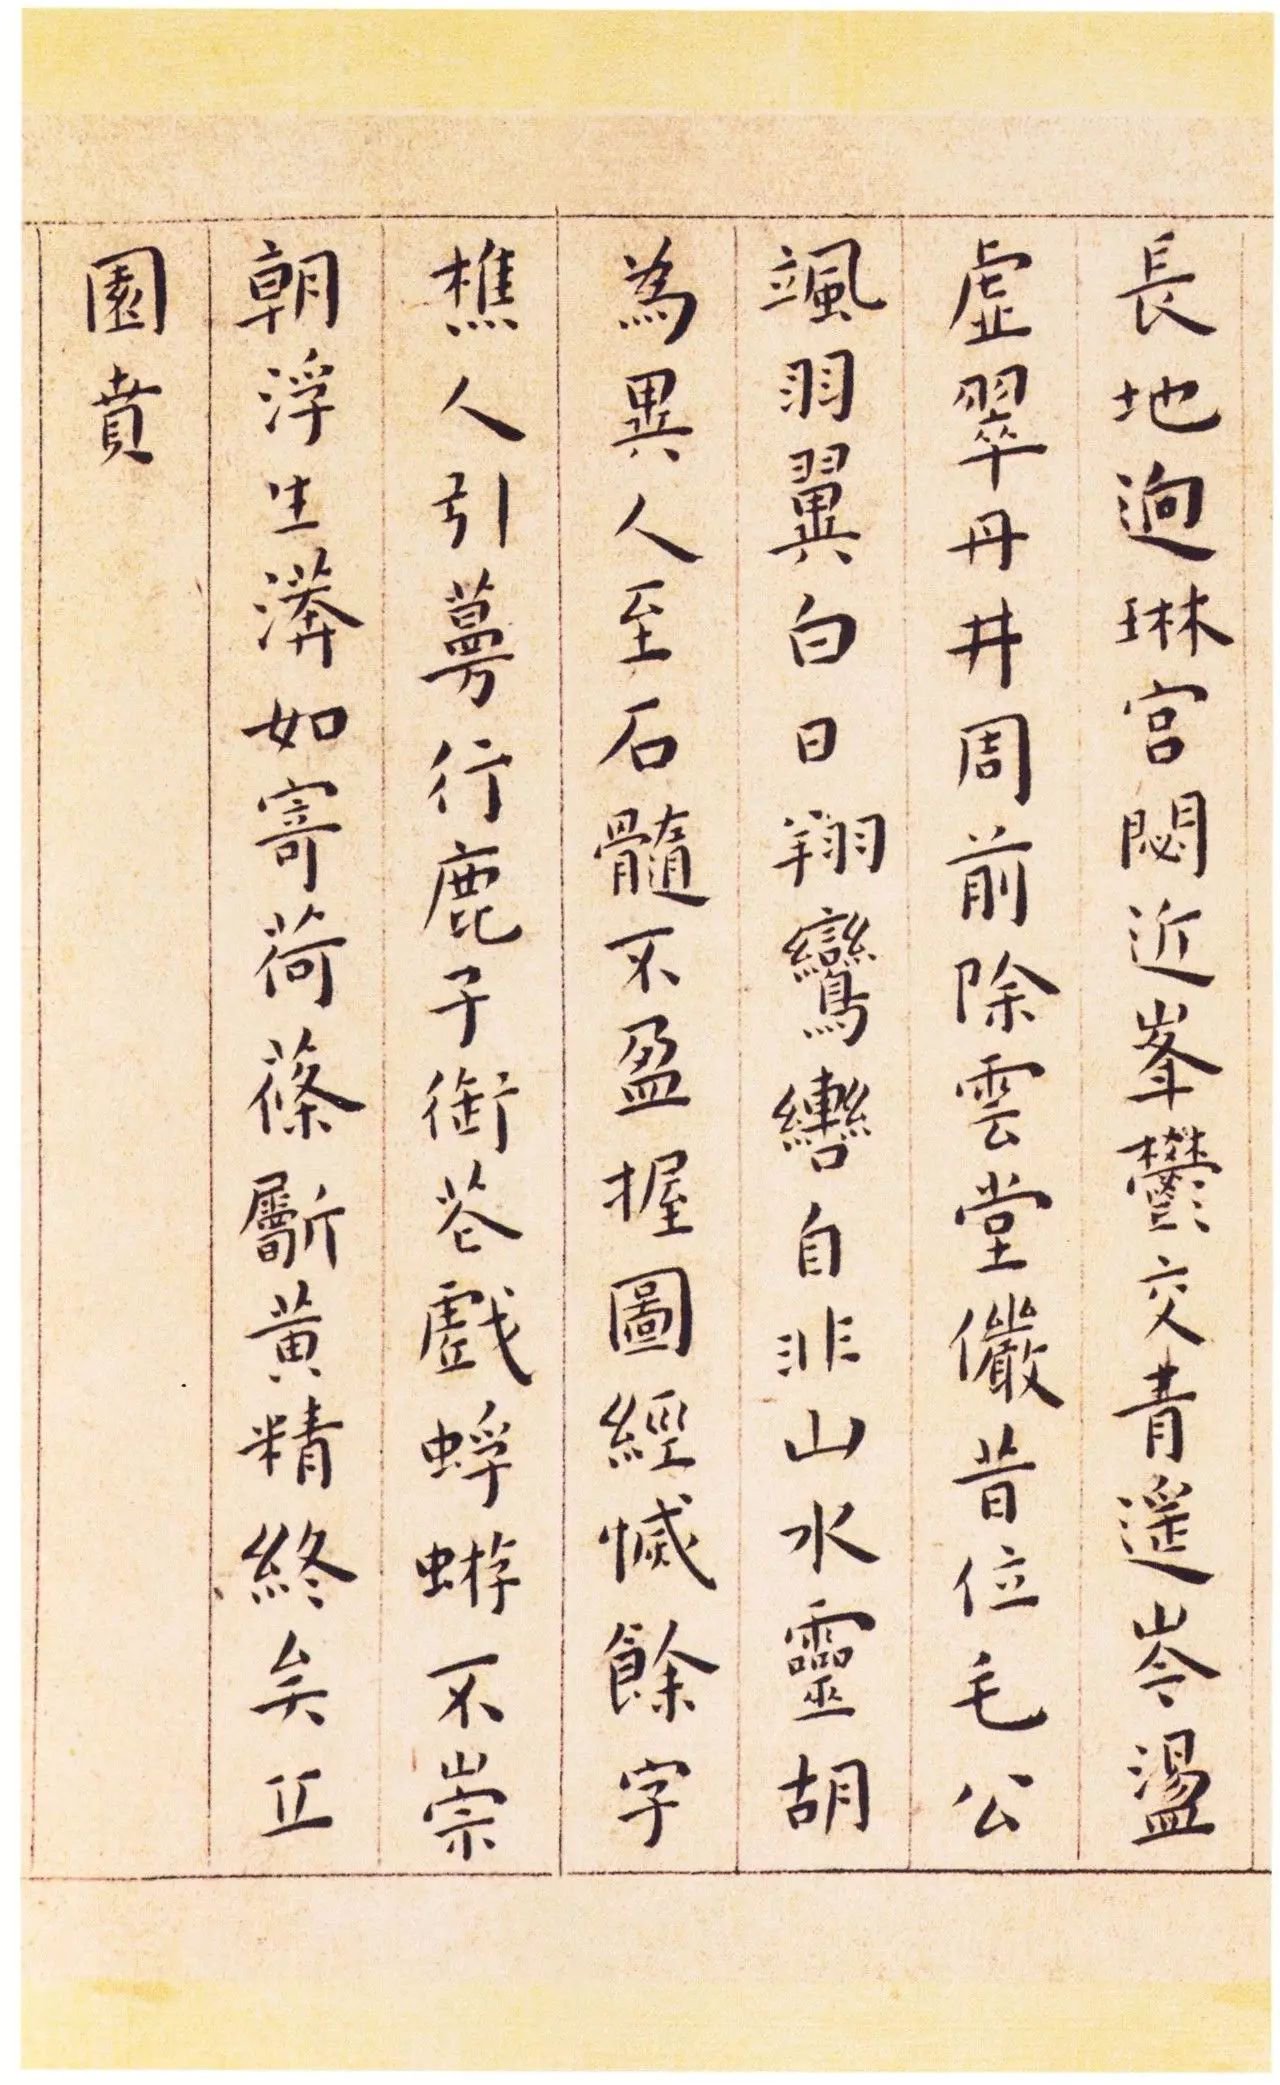 長地迥琳宮閟近峯鬱交青遥岑盪
虛翠丹井周前除雲堂儼昔位毛公
颯羽翼白日翔鸞轡自非山水靈胡
為異人至石髓不盈握圖經憾餘字
樵人引蔓行鹿子銜花戲蜉蝣不崇
朝浮生漭如寄荷蓧斸黃精終矣丘
園賁